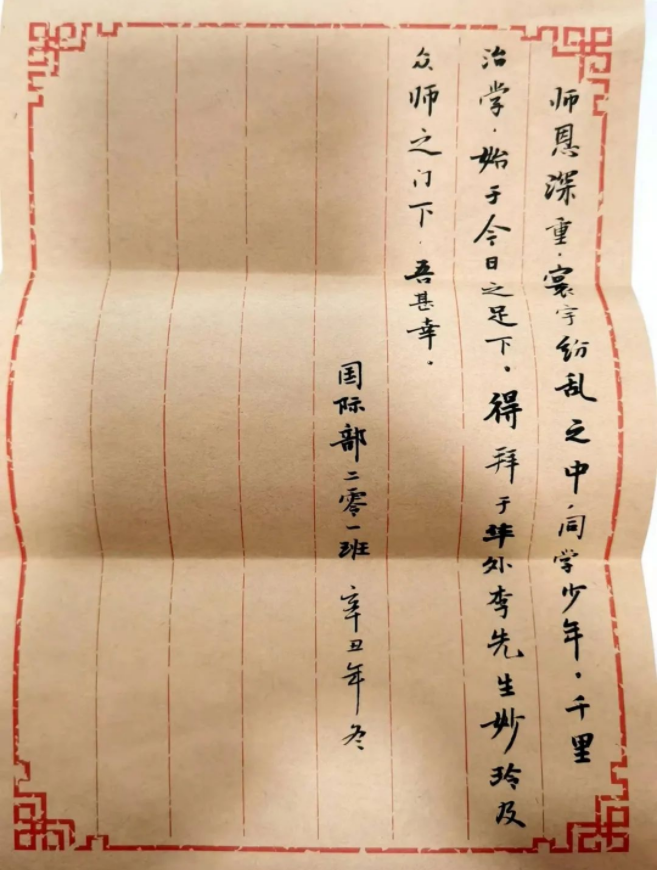 师恩深重。寰宇纷乱之中,同学少年。千里
治学,始于今日之足下。得拜于华外李先生妙玲及
众师之门下,吾甚幸。
国际部二零一班 辛丑年冬